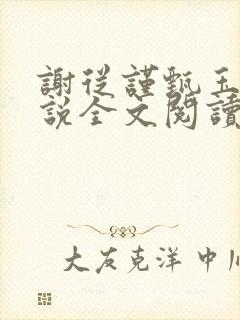 謝從謹甄玉
說全文閱讀
大友克洋 中川